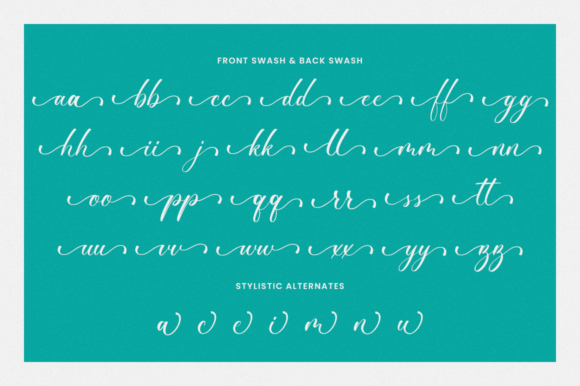 FRONT SWASH & BACK SWASH
aa bb cc dd ee ff gg
hh ii j kk ll mm nn
oo pp qq rr ss tt
uu vv ww xx yy zz
STYLISTIC ALTERNATES
a c e i m n u